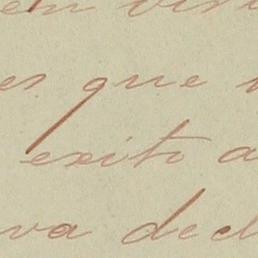 em vis
es que
exito a
va decl